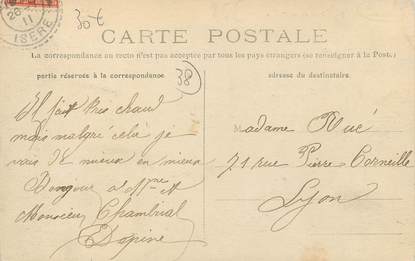 30€
26
11
ISERE
CARTE POSTALE
La correspondance au recto n'est pas acceptée par tous les pays étrangers (se renseigner à la Poste.)
partie réservée à la correspondance
38
adresse du destinataire.
Il fait très chaud
mais malgré cela je
vais de mieux en mieux
Bonjour à Mme et
Monsieur Chambrial
Madame Rué
71 rue Pierre Corneille
Lyon